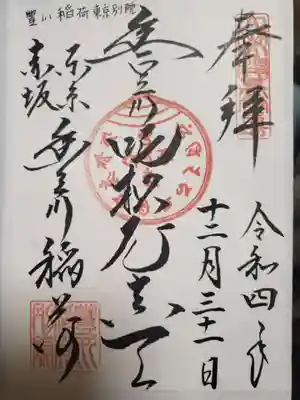 豊川稲荷東京別院
奉拝
令和四年
十二月三十一日
豊川吒枳尼真天
東京
赤坂
豊川稲荷